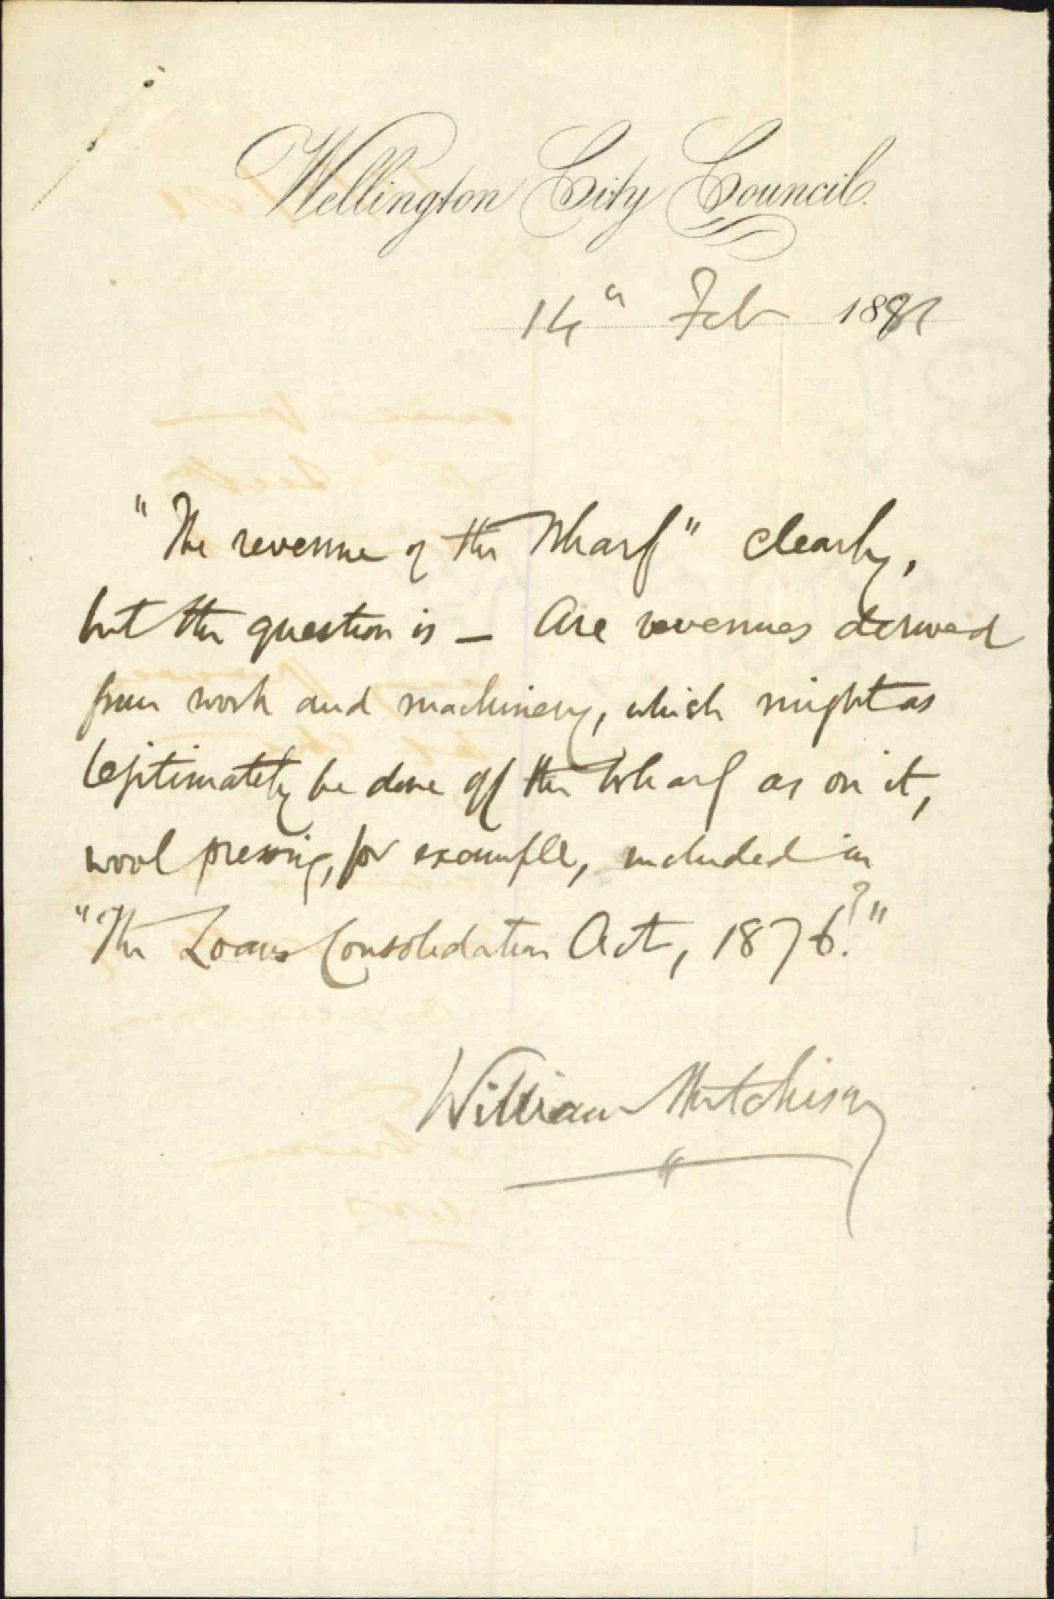 Wellington City Council.
14" Feb 1881
"The revenue of the Wharf" clearly,
but the question is — Are revenues derived
from work and machinery, which might as
legitimately be done off the Wharf as on it,
wool pressing, for example, included in
"The Loans Consolidation Act, 1876?"
William Hutchison